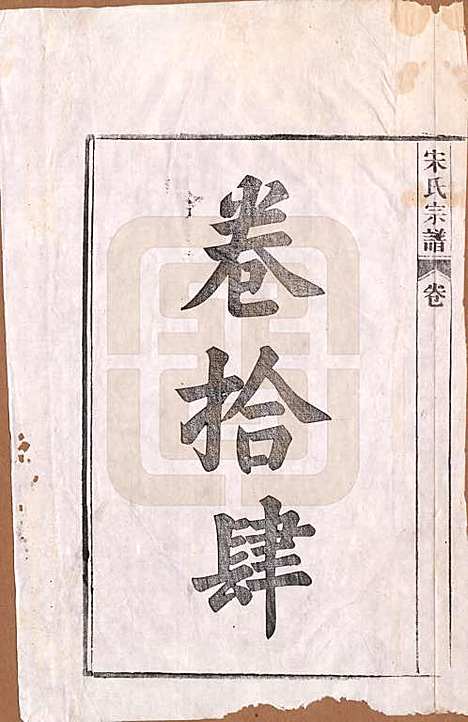 宋氏宗譜
卷
卷拾肆